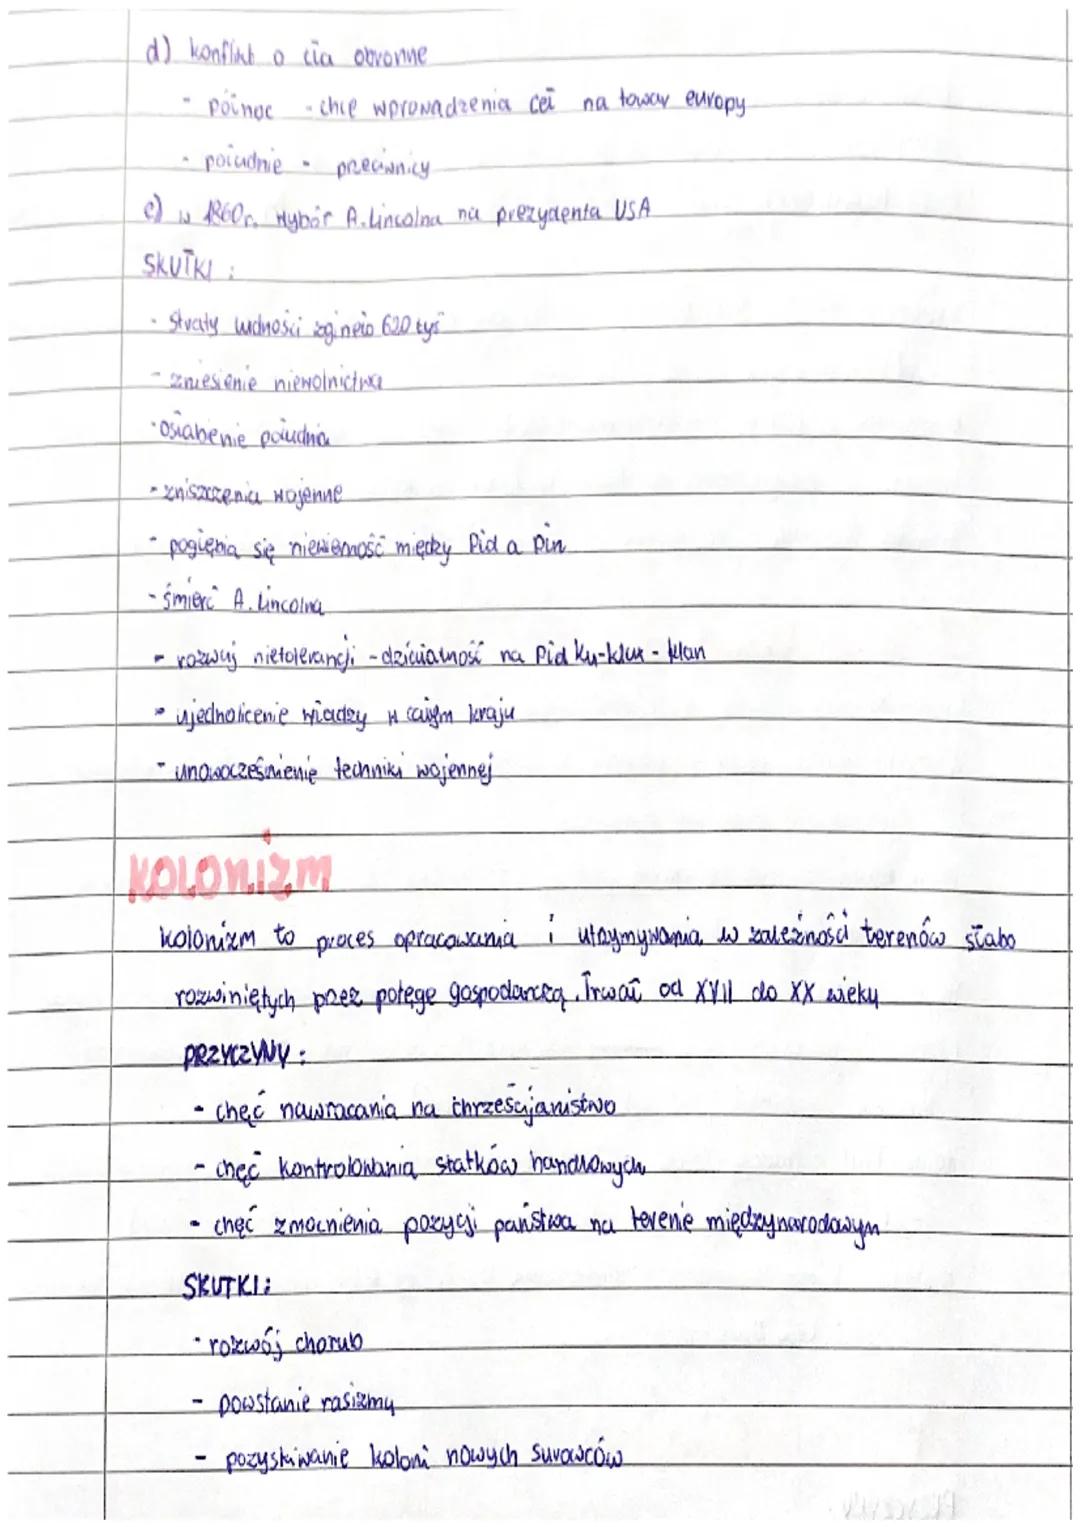 d) konflikt o cła obronne
- północ - chce wprowadzenia ceł na towar europy
- południe - przeciwnicy
e) w 1860r. wybór A. Lincolna na prezydenta USA
SKUTKI :
- straty ludności zgineło 620 tyś
- zniesienie niewolnictwa
- osłabenie połudna
- zniszczenia wojenne
- pogłębia się niewierność między Płd a Płn
- śmierć A. Lincolna
- rozwuj nietolerancji - działalność na Płd Ku-klux - klan
- ujednolicenie władzy w całym kraju
- unowocześnienie techniki wojennej
KOLONIZM
kolonizm to proces opracowania i utrzymywania w zależności terenów słabo
rozwiniętych przez potęgę gospodarczą. Trwał od XVII do XX wieku
PRZYCZYNY :
- chęć nawracania na chrześcijaństwo
- chęć kontrolowania statków handlowych
- chęć zmocnienia pozycji państwa na terenie międzynarodowym
SKUTKI:
- rozwój chorub
- powstanie rasizmu
- pozyskiwanie koloni nowych surowców